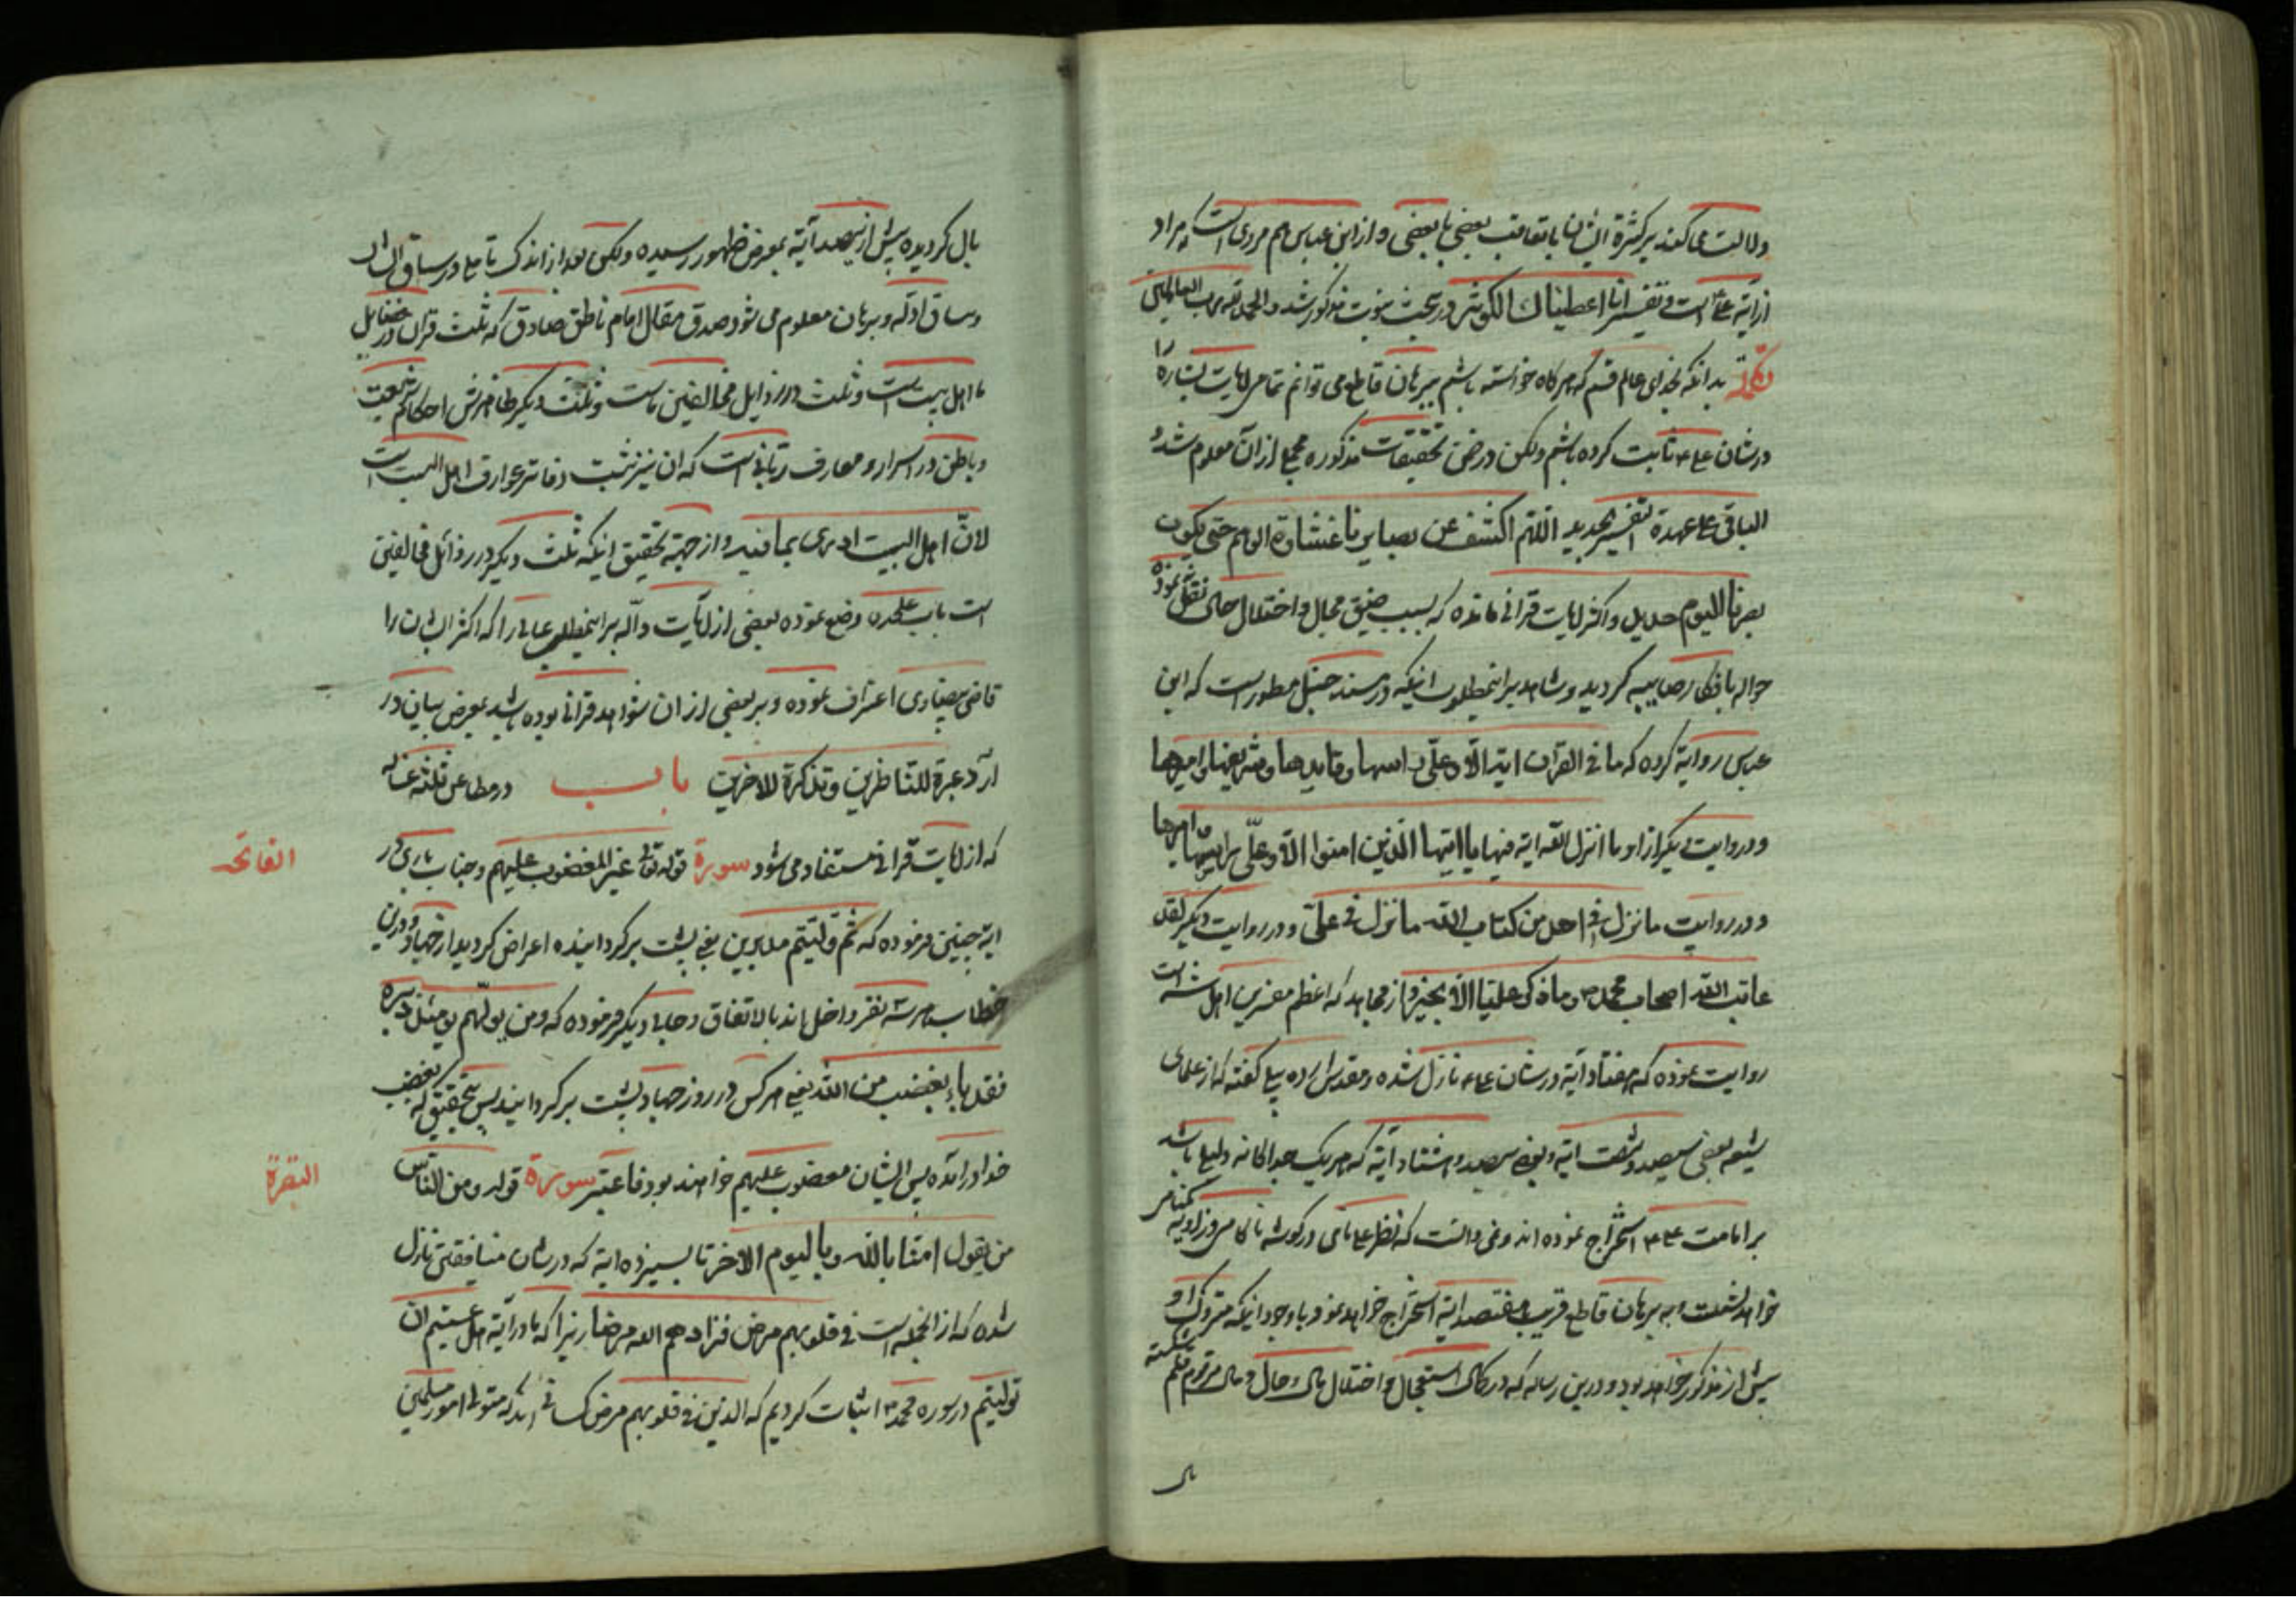 دلالت میکند بر کثرة ایشان با تعاقب بعضی با بعضی و از ابن عباس هم مروی است که مراد
از آیة علی است و تفسیر انا اعطیناك الکوثر در بحث نبوت مذکور شد والحمد لله رب العالمین
تکملة بدانکه بخدای عالم قسم که هرکاه خواسته باشم ببرهان قاطع می توانم تمامی آیات بشاره را
در شان علی ع ثابت کرده باشم ولکن در ضمن تحقیقات مذکوره مجملی از آن معلوم شد و
الباقی علی عهدة التفسیر الجدید اللهم اکشف عن بصایرنا غشاوة الوهم حتی یکون
بصرنا الیوم حدید و اکثر آیات قرانی مانده که بسبب ضیق مجال و اختلال حال نقل نمود
حواله بافکار صایبه کردید و شاهد بر اینمطلوب اینکه در مسند حنبل مسطور است که ابن
عباس روایة کرده که ما فی القران ایة الا و علی راسها و قایدها و شریفها و امیرها
و در روایت دیکر از او ما انزل الله ایة فیها یا ایها الذین امنوا الا و علی راسها و امیرها
و در روایت ما نزل فی احد من کتاب الله ما نزل فی علی و در روایت دیکر لقد
عاتب الله اصحاب محمد ص و ما ذکر علیا الا بخیر و از مجاهد که اعظم مفسرین اهل سنة است
روایت نموده که هفتاد آیة در شان علی ع نازل شده و مقدس ارده بیلی کفته که از علمای
شیعه بعضی سیصد و شصت ایة و بعضی سیصد و هشتاد آیة که هر یک جداکانه دلیل باشد
بر امامت علی ع استخراج نموده اند و نمی دانست که نظر علی نامی در کوشه ناکامی و زاویه کمنامی
خواهد نشست و به برهان قاطع قریب هفتصد ایة استخراج خواهد نمود با وجود اینکه متروک او
بیش از مذکور خواهد بود و درین رساله که در کمال استعجال و اختلال بال و حال و مال مرقوم قلم شکسته
بال
بال کردیده بیش از سیصد آیة بمعرض ظهور رسیده ولکن بعد از اندک تاملی در سباق ان
و سیاق ادله و برهان معلوم می شود صدق مقال امام ناطق صادق که ثلث قران در فضایل
ما اهل بیت است و ثلث در رذایل مخالفین ماست و ثلث دیکر ظاهرش احکام شریعت
و باطن در اسرار و معارف ربانی است که ان نیز ثبت دفاتر عوارف اهل البیت است
لان اهل البیت ادری بما فیه و از جهة تحقیق اینکه ثلث دیکر در رذائل مخالفین
است باب علیحده وضع نموده بعضی از آیات داله بر اینمطلب عالی را که اکثر ایشان را
قاضی بیضاوی اعتراف نموده و بر بعضی از ان شواهد قرانی بوده باشد بمعرض بیان در
آرد عبرة للناظرین و تذکرة للاخرین باب در مطاعن ثلثه
که از آیات قرانی مستفاد می شود سورة قوله تعالی غیر المغضوب علیهم و جناب باری در
الفاتحه
ایة چنین فرموده که ثم ولیتم مدبرین یعنی پشت برکردانیده اعراض کردید از جهاد و درین
خطاب هر سه نفر داخل اند بالاتفاق و جای دیکر فرموده که و من یولهم یومئذ دبره
فقد باء بغضب من الله یعنی هر کس در روز جهاد پشت برکرداند پس بتحقیق که بغضب
خدا در آمده پس ایشان مغضوب علیهم خواهند بود فاعتبر سورة قوله و من الناس
البقرة
من یقول امنا بالله و بالیوم الاخر تا سیزده ایة که در شان منافقین نازل
شده که از انجمله است فی قلوبهم مرض فزادهم الله مرضا زیرا که ما در آیة هل عسیتم ان
تولیتم در سوره محمد ص اثبات کردیم که الذین فی قلوبهم مرض کسانی اند که متولی امور مسلمین